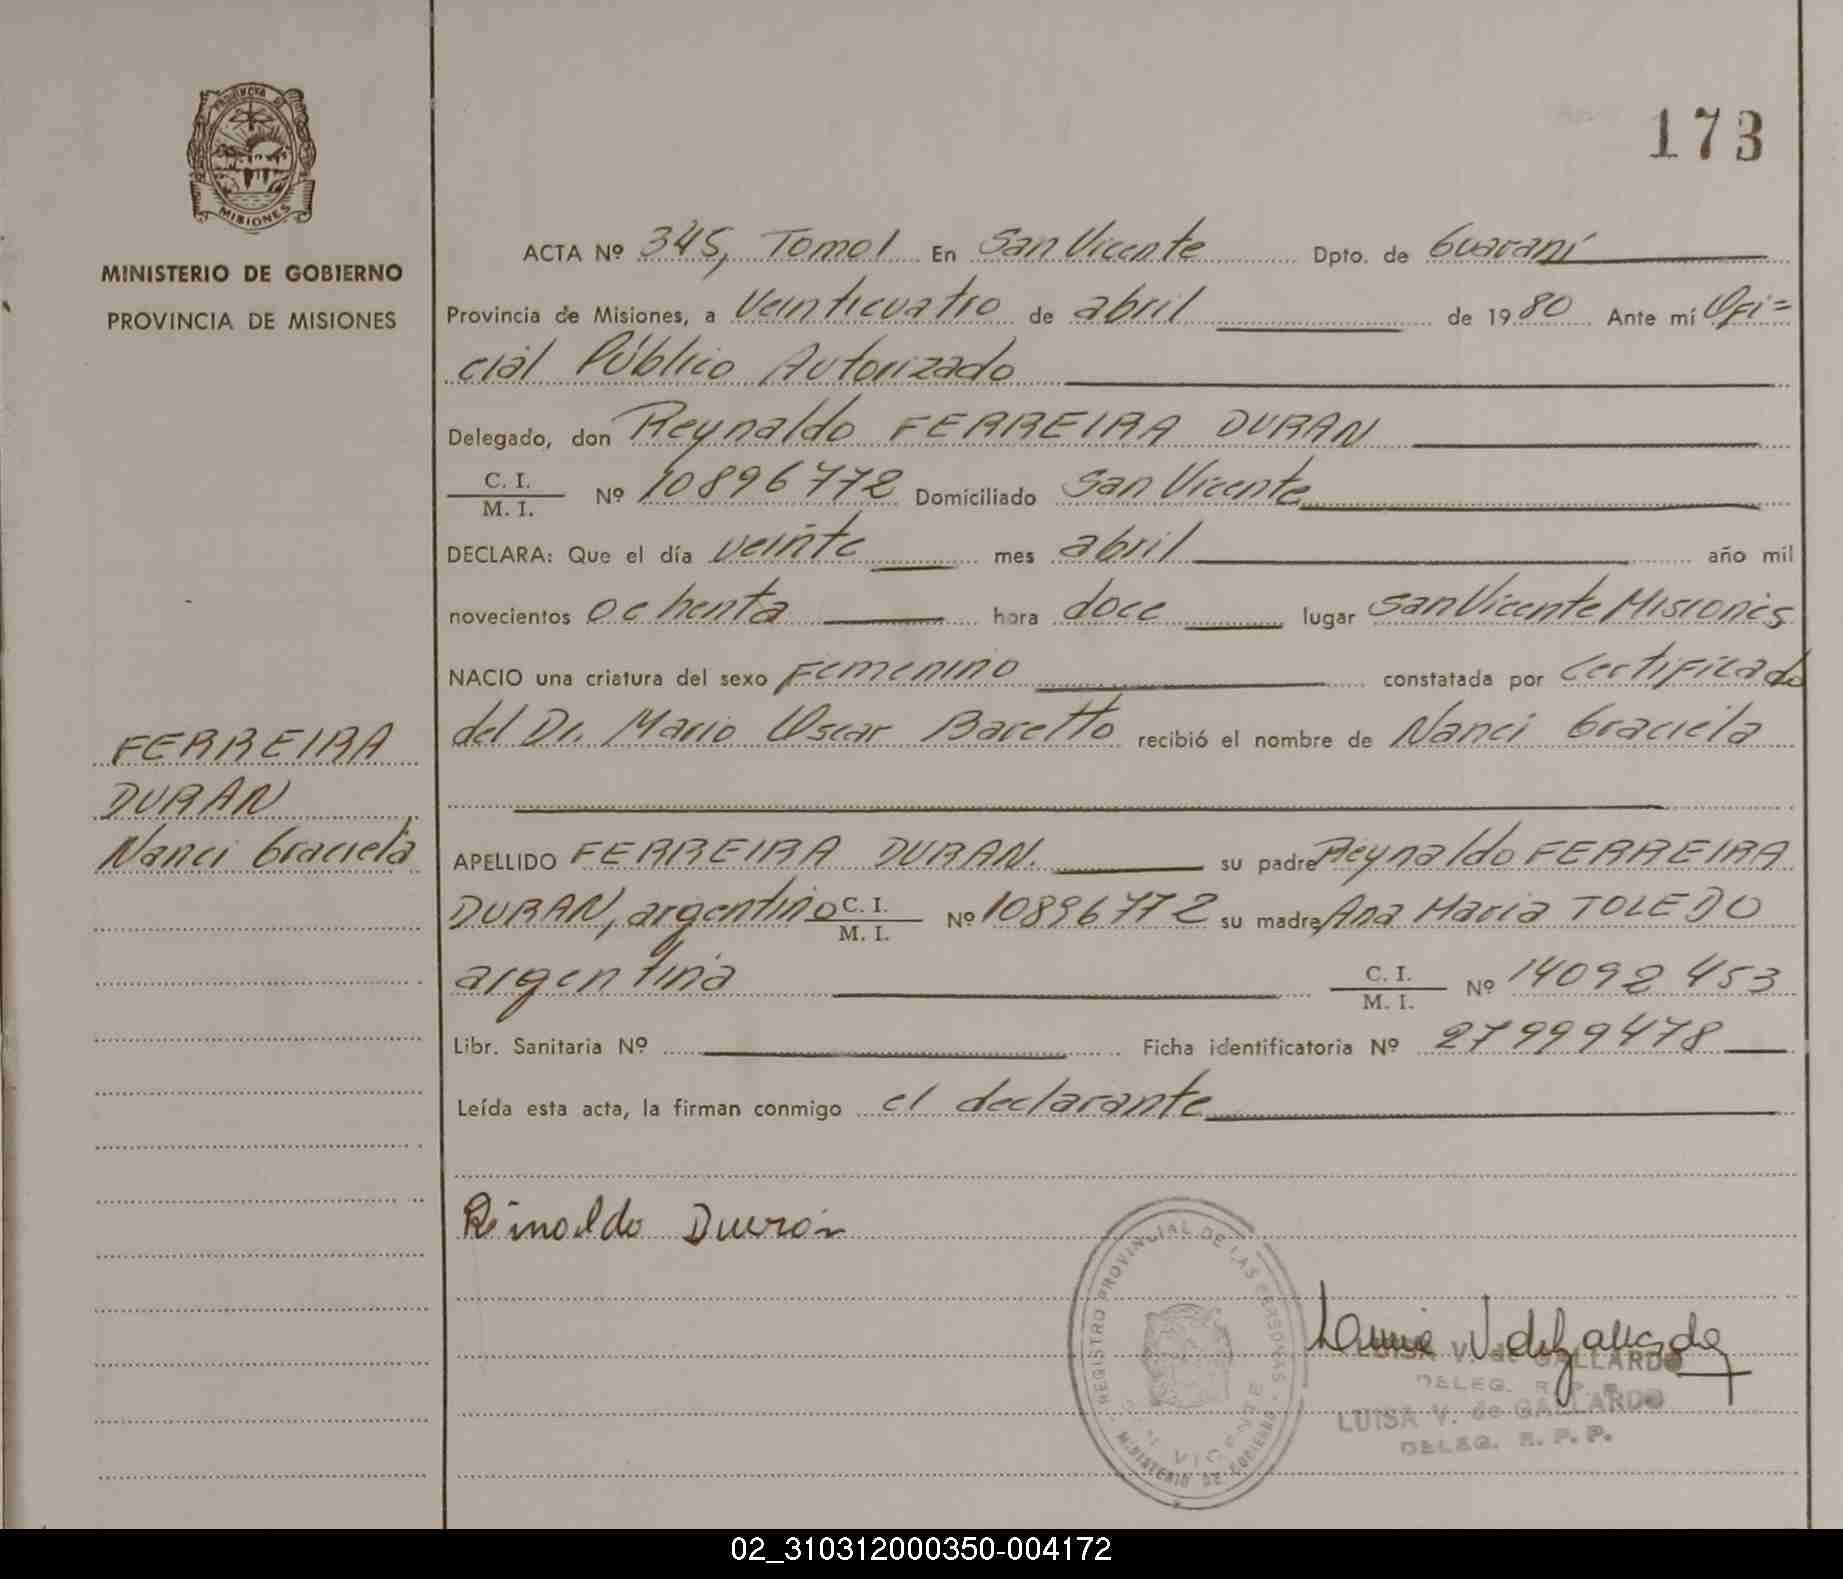 PROVINCIA DE
MISIONES
MINISTERIO DE GOBIERNO
PROVINCIA DE MISIONES
FERREIRA
DURAN
Nanci Graciela
173
ACTA Nº 345, Tomo I En San Vicente Dpto. de Guaraní
Provincia de Misiones, a Veinticuatro de abril de 1980 Ante mí Ofi=
cial Público Autorizado
Delegado, don Reynaldo FERREIRA DURAN
C. I.
M. I.
Nº 10896772 Domiciliado San Vicente
DECLARA: Que el día veinte mes abril año mil
novecientos ochenta hora doce lugar San Vicente Misiones
NACIO una criatura del sexo Femenino constatada por Certificado
del Dr. Mario Oscar Bacetto recibió el nombre de Nanci Graciela
APELLIDO FERREIRA DURAN. su padre Reynaldo FERREIRA
DURAN, argentino C. I.
M. I.
Nº 10896772 su madre Ana Maria TOLEDO
argentina C. I.
M. I.
Nº 14092453
Libr. Sanitaria Nº Ficha identificatoria Nº 27999478
Leída esta acta, la firman conmigo el declarante
Reinaldo Duran
REGISTRO PROVINCIAL DE LAS PERSONAS
SAN VICENTE
MINISTERIO DE GOBIERNO
LUISA V. de GALLARDO
DELEG. R. P. P.
LUISA V. de GALLARDO
DELEG. R. P. P.
02_310312000350-004172